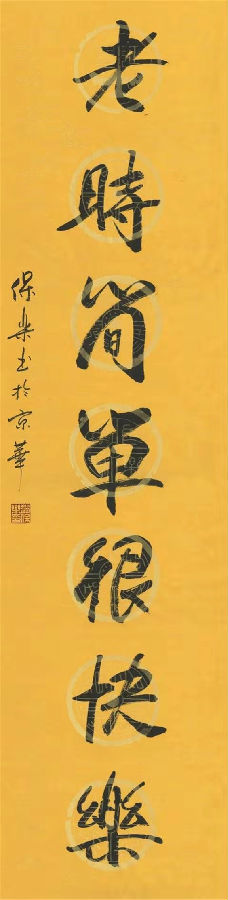 老時简單很快樂
保樂书於京華